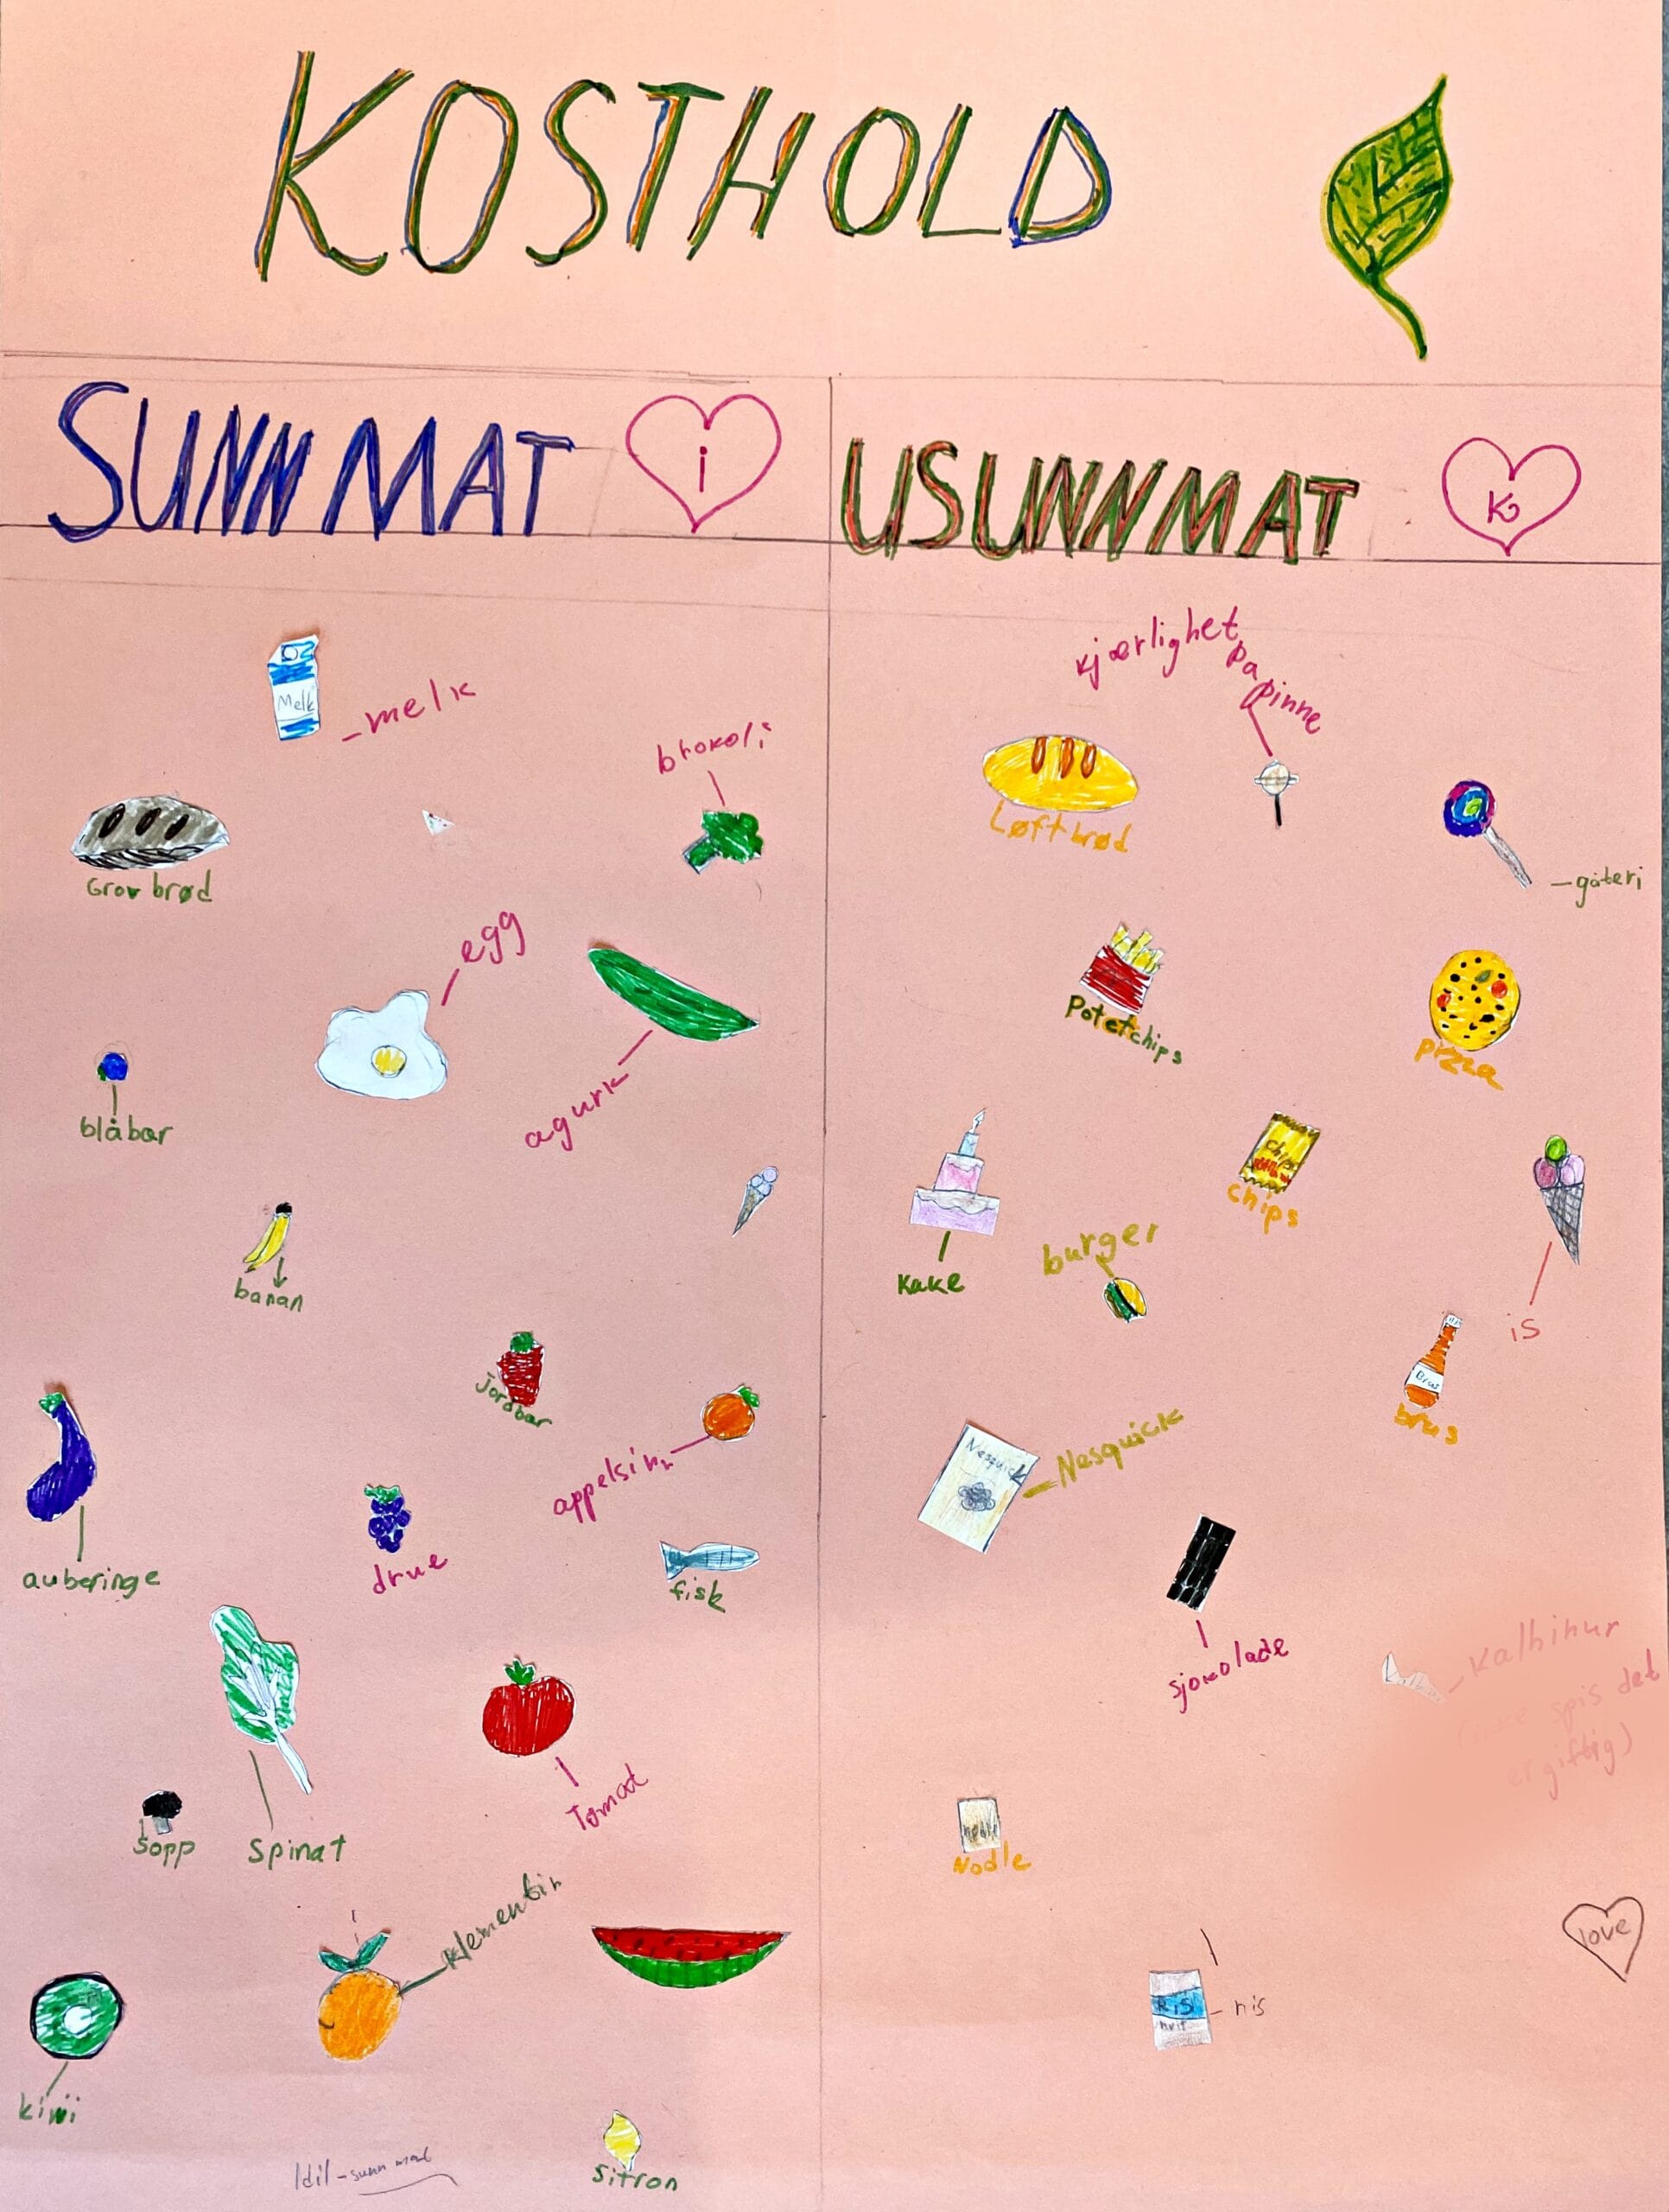 KOSTHOLD
SUNN MAT
i
USUNNMAT
K
Melk
-melk
brokoli
Grov brød
egg
agurk
blåbær
banan
Jordbær
appelsin
auberinge
drue
fisk
Spinat
Tomat
Sopp
klementin
kiwi
Idil-sunn mat
Sitron
kjærlighet
på
pinne
Løftbrød
-gåteri
Potetchips
pizza
chips
chips
kake
burger
is
Brus
brus
Nesquick
-Nesquick
sjokolade
-Kalhinur
spis det
er giftig)
Nodle
love
RiS
hvit
-ris